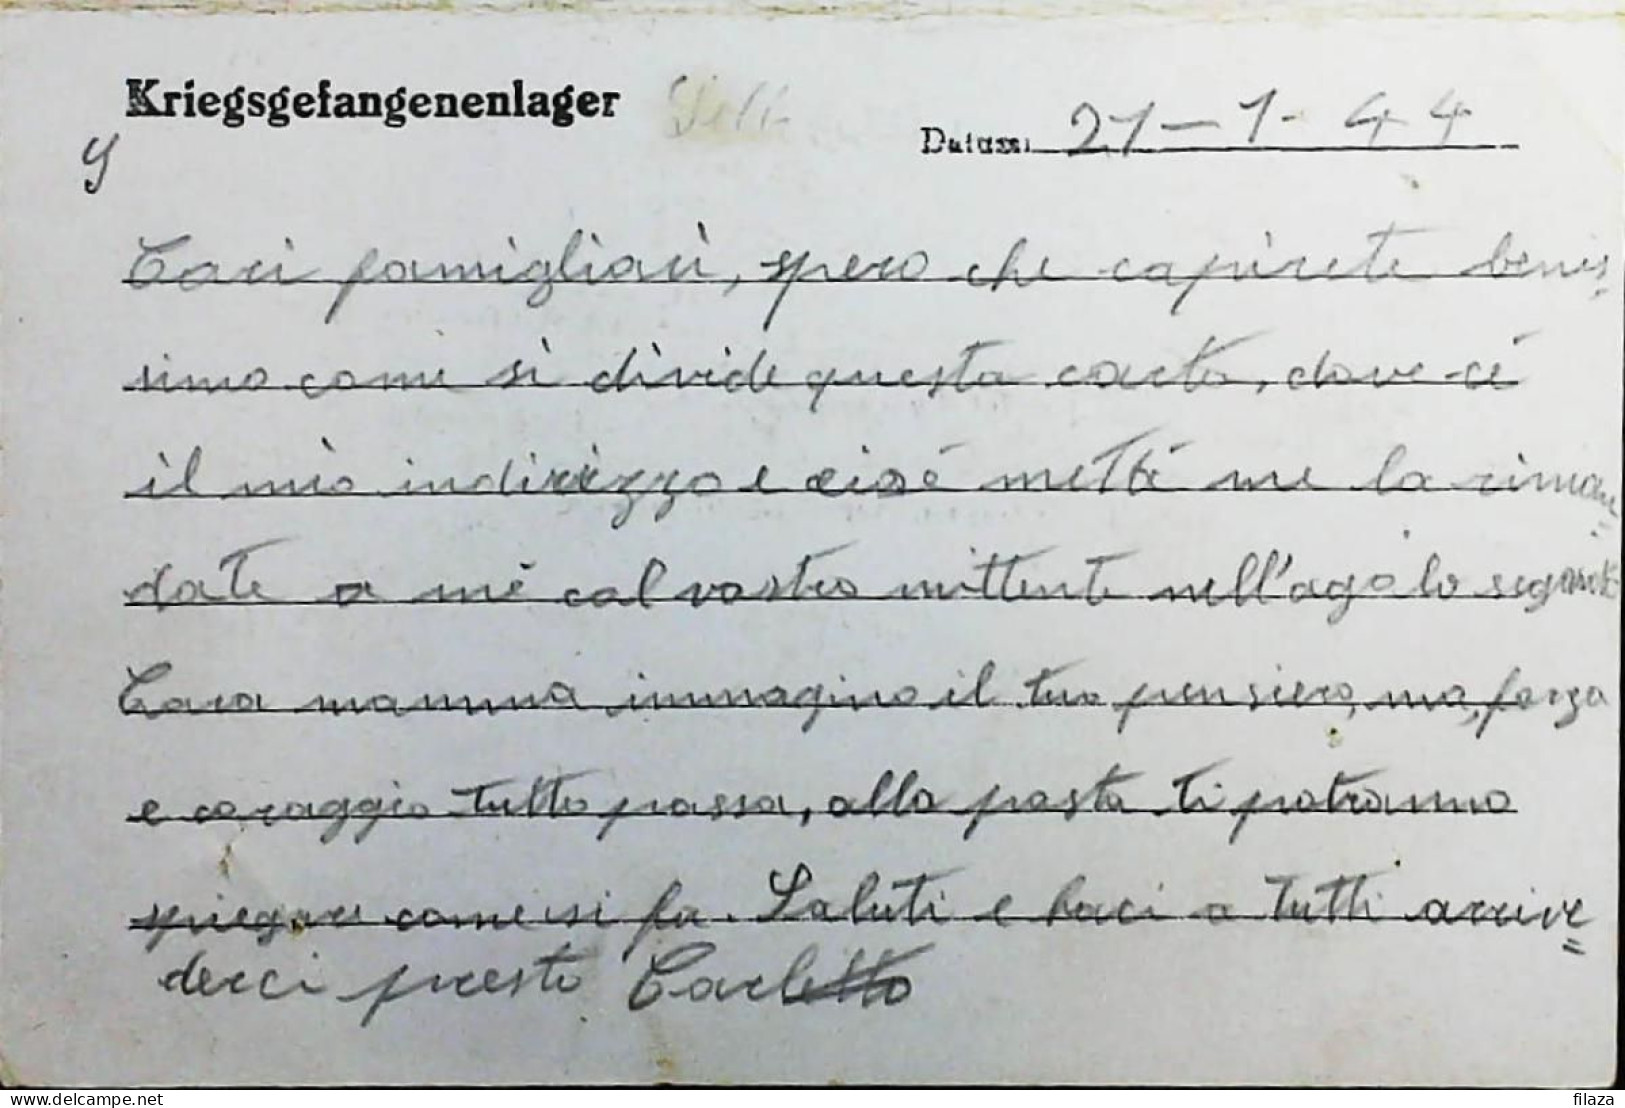 Kriegsgefangenenlager
Datum: 21-1-44
Cari famigliari, spero che capirete benis=
simo come si divide questa carta, dove c'é
il mio indirizzo e cioé metté me la riman=
date a mé col vostro mittente nell'
Cara mamma immagino il tuo pensiero, ma, forza
e coraggio tutto passa, alla posta ti potranno
spiegare come si fa. Saluti e baci a tutti arrive=
derci presto Carletto
filaza